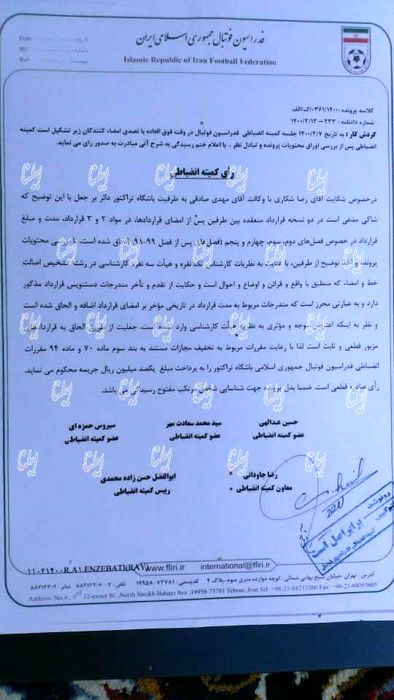 فدراسیون فوتبال جمهوری اسلامی ایران
Islamic Republic of Iran Football Federation
Date:
No:
کلاسه پرونده :۱۴۰۰/۰۳۶۱/ک/الف
شماره دادنامه : ۲۳۳ – ۱۴۰۰/۲/۱۳
گردش کار : به تاریخ ۱۴۰۰/۲/۷ جلسه کمیته انضباطی فدراسیون فوتبال در وقت فوق العاده با تصدی امضاء کنندگان زیر تشکیل است کمیته
انضباطی پس از بررسی اوراق محتویات پرونده و تبادل نظر ، با اعلام ختم رسیدگی به شرح آتی مبادرت به صدور رای می نماید.
رای کمیته انضباطی
درخصوص شکایت آقای رضا شکاری با وکالت آقای مهدی صادقی به طرفیت باشگاه تراکتور دائر بر جعل با این توضیح که
شاکی مدعی است در دو نسخه قرارداد منعقده بین طرفین پس از امضای قراردادها، در مواد ۲ و ۳ قرارداد، مدت و مبلغ
قرارداد در خصوص فصل‌های دوم، سوم، چهارم و پنجم (فصل‌های پس از فصل ۹۹-۹۸) الحاق شده است، با بررسی محتویات
پرونده و اخذ توضیح از طرفین، با عنایت به نظریات کارشناسی تک نفره و هیأت سه نفره کارشناسی در رشته تشخیص اصالت
خط و امضاء که منطبق با واقع و قرائن و اوضاع و احوال است و حکایت از تقدم و تأخر مندرجات دستنویس قرارداد مذکور
دارد و به عبارتی محرز است که مندرجات مربوط به مدت قرارداد در تاریخی مؤخر بر امضای قرارداد اضافه و الحاق شده است
و نظر به اینکه اعتراض موجه و مؤثری به نظریه هیأت کارشناسی وارد نشده است، جعلیت از طریق الحاق به قراردادهای
مزبور قطعی و ثابت است لذا با رعایت مقررات مربوط به تخفیف مجازات مستند به بند سوم ماده ۷۰ و ماده ۹۴ مقررات
انضباطی فدراسیون فوتبال جمهوری اسلامی باشگاه تراکتور را به پرداخت مبلغ یکصد میلیون ریال جریمه محکوم می نماید.
رأی صادره قطعی است. ضمنا بدل پرونده جهت شناسایی شخص مرتکب مفتوح رسیدگی می باشد.
حسین عبدالهی
سید محمد سعادت مهر
سیروس حمزه ای
عضو کمیته انضباطی
عضو کمیته انضباطی
عضو کمیته انضباطی
رضا جاودانی
ابوالفضل حسن زاده محمدی
معاون کمیته انضباطی
رئیس کمیته انضباطی
رونوشت برابر اصل است
www.ffiri.ir
international@ffiri.ir
آدرس : تهران، خیابان شیخ بهایی شمالی، کوچه دوازده متری سوم، پلاک ۴